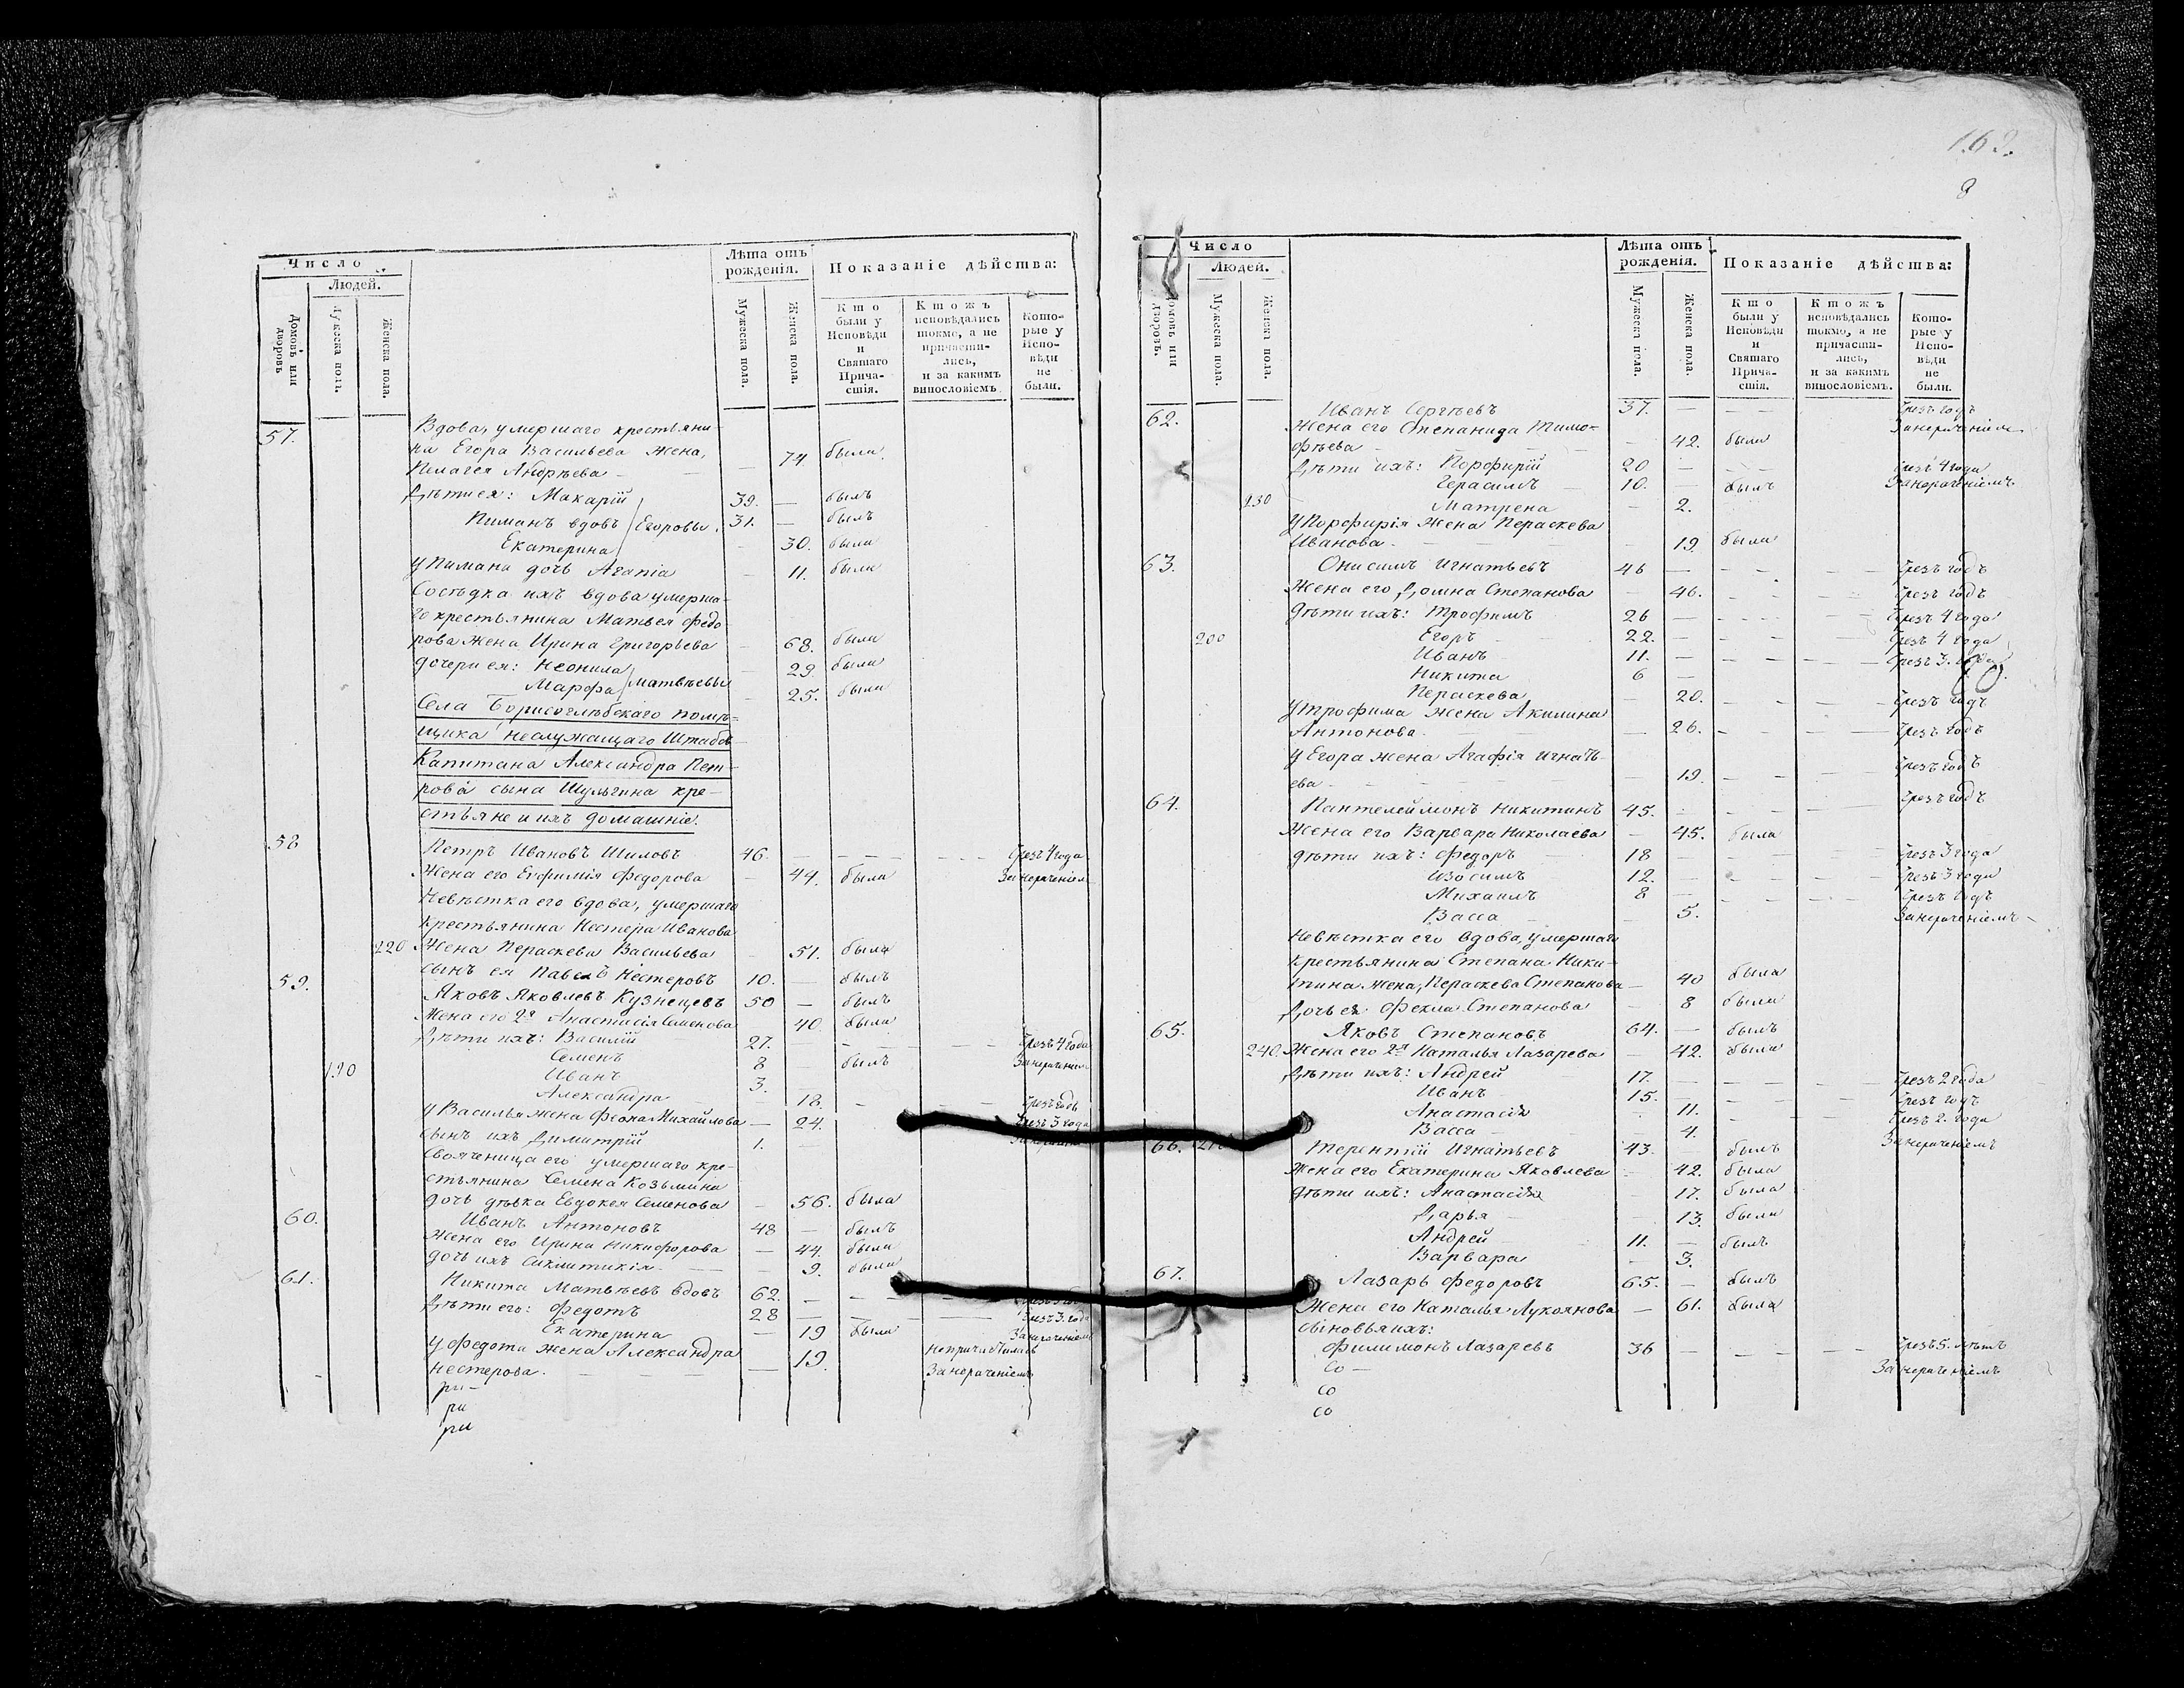 Число
Людей.
Домовъ или дворовъ
Мужеска пола.
Женска пола.
Лѣта отъ рожденія.
Мужеска пола.
Женска пола.
Показаніе дѣйства:
Кто были у Исповѣди и Святаго Причастія.
Ктожъ исповѣдались токмо, а не причастились, и за какимъ винословіемъ.
Которые у Исповѣди не были.
57. Вдова, умершаго крестьяни-
на Егора Васильева жена,
Пелагея Андрѣева — — 74. была.
Дѣти ея: Макарій 39. — былъ
Пиманъ вдовъ Егоровы. 31. — былъ
Екатерина — 30. была
у Пимана дочь Агапіа — 11. была
Сосѣдка ихъ вдова умерша-
го крестьянина Матвея Федо
рова жена Ирина Григорьева — 68. была
дочери ея: Неонила — 29. была
Марфа Матвѣевы — 25. была
Села Борисоглѣбскаго помѣ-
щика неслужащаго Штабсъ
Капитана Александра Пет-
рова сына Шульгина кре-
стьяне и ихъ домашніе.
58 Петръ Ивановъ Шиловъ 46. — — — чрезъ 4 года
Жена его Евфимія Федорова — 44. была За нераченіем
Невѣстка его вдова, умершаго
крестьянина Нестера Иванова
220 Жена Пераскева Васильева — 51. была
сынъ ея Павелъ Нестеровъ 10. — былъ
59. Яковъ Яковлевъ Кузнецевъ 50 — былъ
Жена его 2я Анастасія Семенова 40. была
Дѣти ихъ: Василій 27. — — — чрезъ 4 года
Семенъ 8 — былъ За нераченіем
190 Иванъ 3.
Александра — 18. — — чрезъ годъ
у Василья жена Феона Михайлова — 24. чрезъ 3 года
сынъ ихъ Димитрій 1.
свояченица его умершаго кре-
стьянина Семена Козьмина
дочь дѣвка Евдокея Семенова — 56. была
60. Иванъ Антоновъ 48 — былъ
Жена его Ирина Никифорова — 44. была
дочь ихъ Сиклитикія — — 9. была
61. Никита Матвѣевъ вдовъ 62. — — —
Дѣти его: Федотъ 28 — — — чрезъ 3. года
Екатерина — 19 была За нераченіем
у Федота жена Александра — 19. не причастилась
Нестерова. — — — За нераченіемъ
ри-
ри
ри
163.
8
Число
Людей.
Домовъ или дворовъ.
Мужеска пола.
Женска пола.
Лѣта отъ рожденія.
Мужеска пола.
Женска пола.
Показаніе дѣйства:
Кто были у Исповѣди и Святаго Причастія.
Ктожъ исповѣдались токмо, а не причастились, и за какимъ винословіемъ.
Которые у Исповѣди не были.
62. Иванъ Сергѣевъ 37. — — — чрезъ годъ
Жена его Степанида Тимо- За нераченіем
фѣева — 42. была
Дѣти ихъ: Порфирій 20 — — — чрезъ 4 года
Герасимъ 10. — былъ За нераченіемъ
230 Матрена — 2.
У Порфирія жена Пераскева
Иванова. — — 19. была
63. Онисимъ Игнатьевъ 46 — — — чрезъ годъ
Жена его Домна Степанова — 46. — — чрезъ годъ
дѣти ихъ: Трофимъ 26 — — — чрезъ 4 года
200 Егоръ 22. — — — чрезъ 4 года
Иванъ 11. — — — чрезъ 3. года
Никита 6 —
Пераскева — 20. — — чрезъ годъ
у Трофима жена Акилина
Антонова. — — 26. — — чрезъ годъ
у Егора жена Агафія Игнать-
ева — — — 19. — — чрезъ годъ
64. Пантелеймонъ Никитинъ 45. — — — чрезъ годъ
Жена его Варвара Николаева — 45. была
дѣти ихъ: Федоръ 18 — — — чрезъ 3 года
Изосимъ 12. — — — чрезъ 3 года
Михаилъ 8 — — — чрезъ годъ
Васса — 5. За нераченіемъ
Невѣстка его вдова, умершаго
крестьянина Степана Ники-
тина жена, Пераскева Степанова — 40 была
Дочь ея Фекла Степанова — 8 была
65. Яковъ Степановъ 64. — былъ
240. Жена его 2я Наталья Лазарева — 42. была
Дѣти ихъ: Андрей 17. — — — чрезъ 2 года
Иванъ 15. — — — чрезъ годъ
Анастасія — 11. — — чрезъ 2. года
Васса — — 4. За нераченіемъ
66. Терентій Игнатьевъ 43. — былъ
Жена его Екатерина Яковлева — 42. была
дѣти ихъ: Анастасія — 17. была
Дарья — — 13. была
Андрей — 11. — былъ
Варвара — 3.
67. Лазарь Федоровъ 65. — былъ
Жена его Наталья Лукоянова — 61. была
сыновья ихъ:
Филимонъ Лазаревъ 36 — — — чрезъ 5. лѣтъ
со — За нераченіемъ
со
со